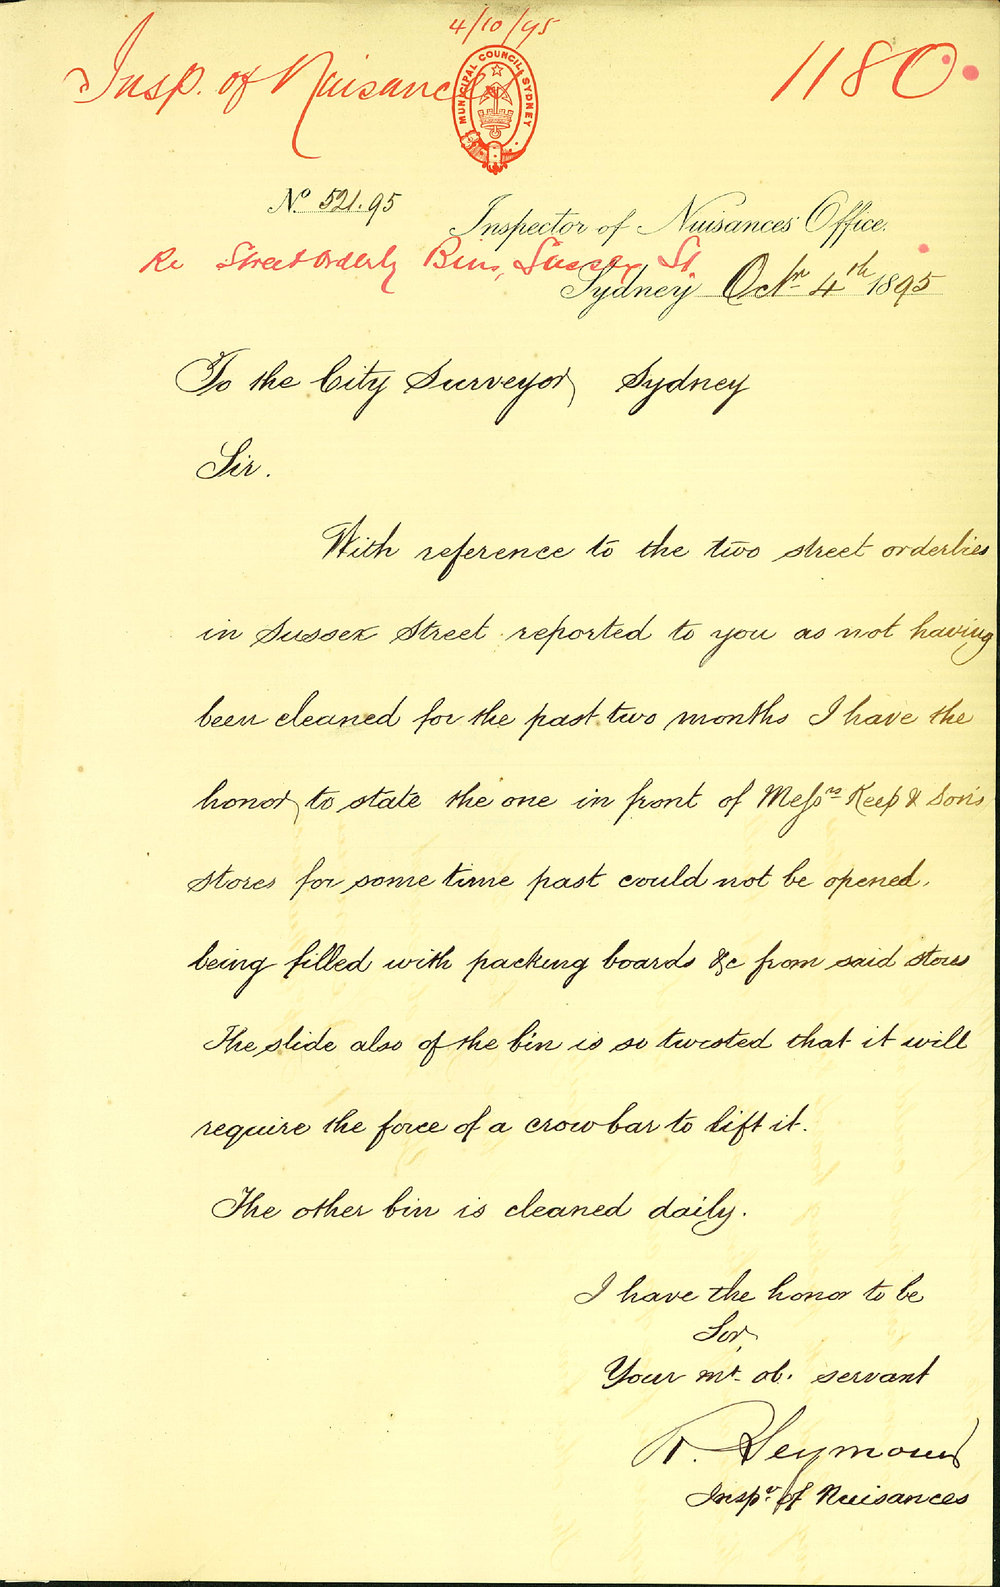 4/10/95
Insp. of Nuisances
1180
MUNICIPAL COUNCIL SYDNEY
No. 521.95
Inspector of Nuisances' Office.
Re Street Orderly Bins, Sussex St.
Sydney Octr 4th 1895
To the City Surveyor, Sydney
Sir.
With reference to the two street orderlies
in Sussex Street reported to you as not having
been cleaned for the past two months I have the
honor, to state the one in front of Messrs Keep & Son's
stores for some time past could not be opened,
being filled with packing boards &c from said stores
The slide also of the bin is so twisted that it will
require the force of a crowbar to lift it.
The other bin is cleaned daily.
I have the honor to be
Sir,
Your mt. ob. servant
R. Seymour
Inspr of Nuisances